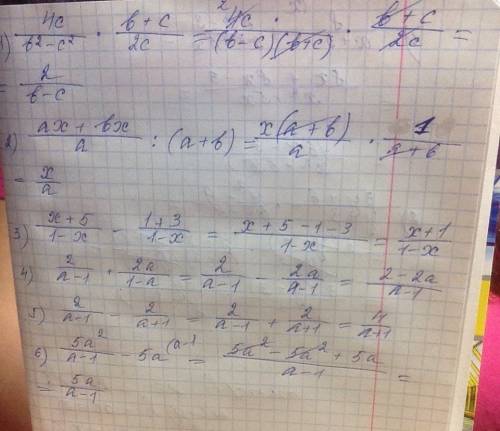 1) 4c/(b²-c²) · (b+c)/2c = 4c 2/((b-c)(b+c)) · (b+c)/2c =
= 2/(b-c)
2) (ax+bx)/a : (a+b) = x(a+b)/a · 1/(a+b)
= x/a
3) (x+5)/(1-x) - (1+3)/(1-x) = (x+5-1-3)/(1-x) = (x+1)/(1-x)
4) 2/(a-1) + 2a/(1-a) = 2/(a-1) - 2a/(a-1) = (2-2a)/(a-1)
5) 2/(a-1) - 2/(a+1) = 2/(a-1) + 2/(a+1) = 4/(a+1)
6) 5a²/(a-1) - 5a (a-1 = (5a²-5a²+5a)/(a-1) =
= 5a/(a-1)